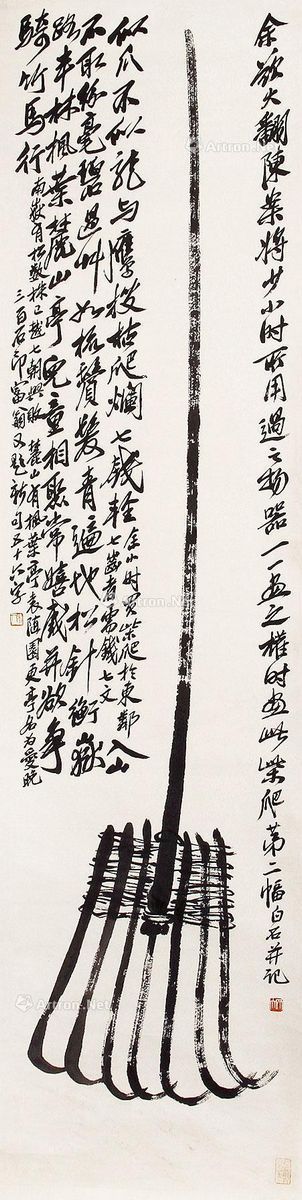 余欲大翻陳案將少小時所用過之物器一一画之權时画此柴爬第二幅白石并记
似爪不似龍与鷹搜枯爬爛七錢輕余小时買柴爬於東鄰七齒者需錢七文入山
不取絲毫碧過草如梳鬢髮青遍地松針衡嶽
路半林楓葉麓山亭兒童相聚常嬉戲并欲爭
騎竹馬行南嶽有松數株已越七朝興敗麓山有楓葉亭袁隨園更亭名为愛晚
三百石印富翁又题新句五十六字
Artron.Net